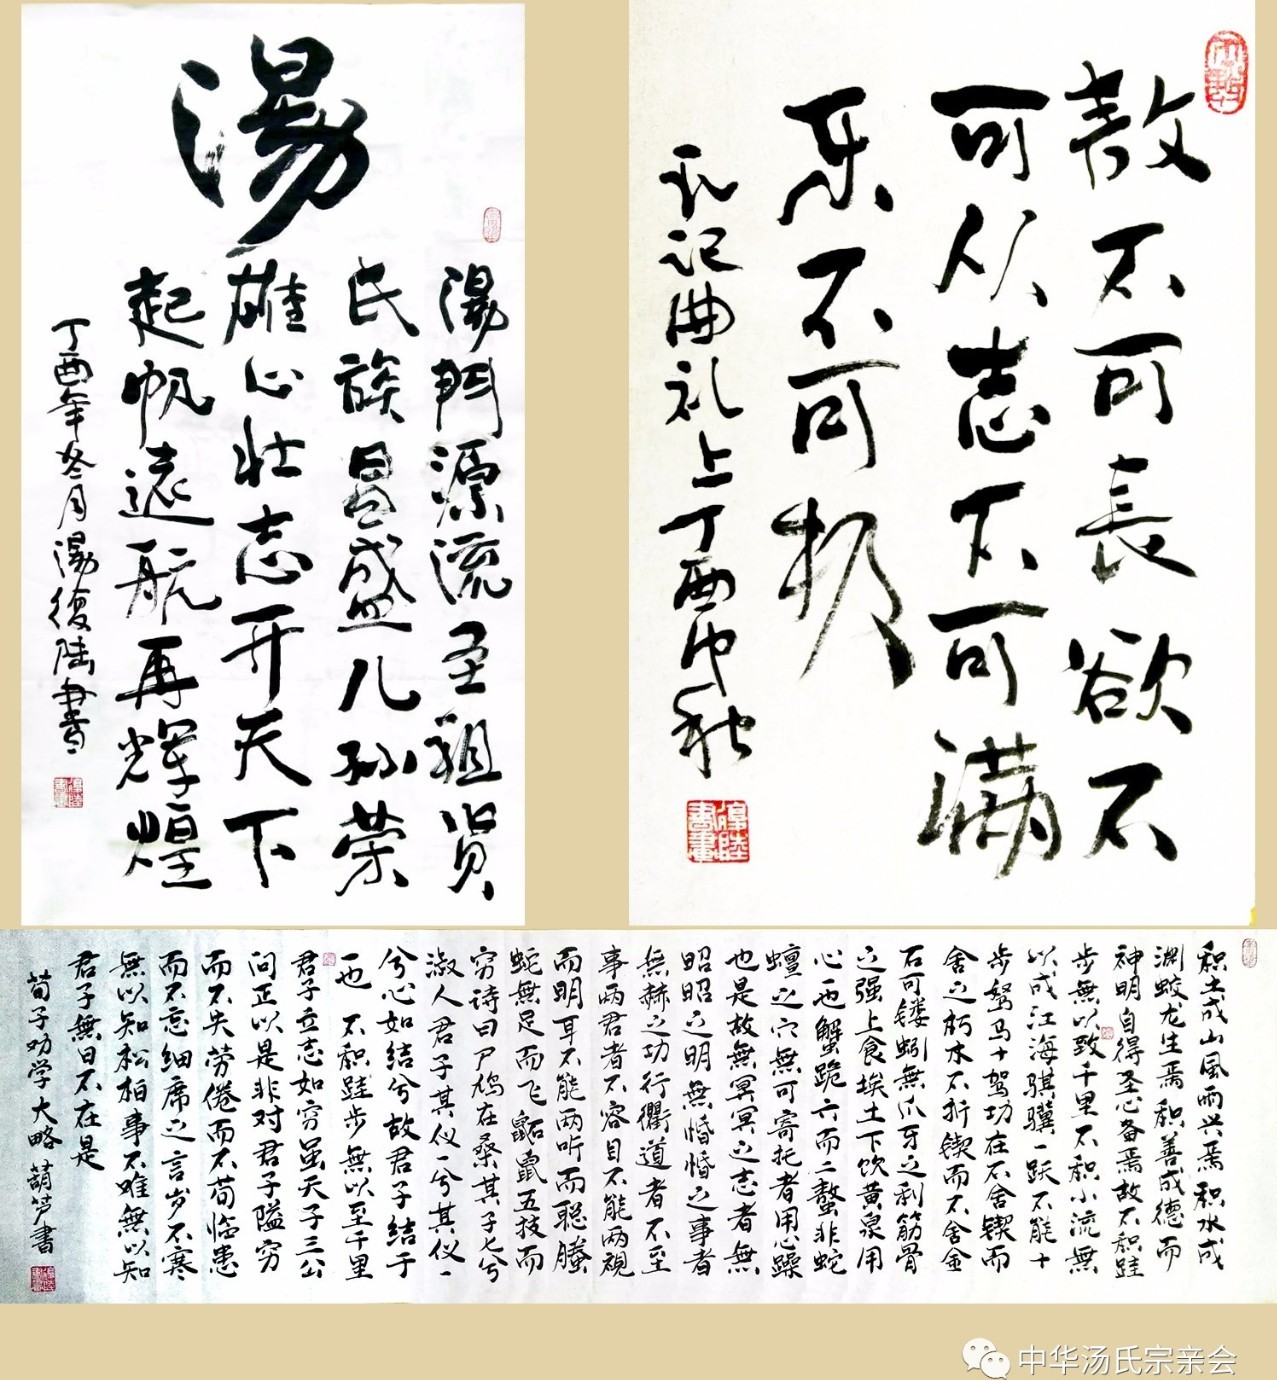 湯
湯門源流圣祖賢
氏族昌盛儿孙荣
雄心壮志开天下
起帆遠航再輝煌
丁酉年冬月湯復陆書
敖不可長欲不
可从志不可满
乐不可极
礼记曲礼上丁酉中秋
积土成山風雨兴焉积水成
渊蛟龙生焉积善成德而
神明自得圣心备焉故不积跬
步無以致千里不积小流無
以成江海骐骥一跃不能十
步驽马十驾功在不舍锲而
舍之朽木不折锲而不舍金
石可镂蚓無爪牙之利筋骨
之强上食埃土下饮黄泉用
心一也蟹跪六而二螯非蛇
蟺之穴無可寄托者用心躁
也是故無冥冥之志者無
昭昭之明無惛惛之事者
無赫之功行衢道者不至
事两君者不容目不能两視
而明耳不能两听而聪螣
蛇無足而飞鼫鼠五技而
穷诗曰尸鸠在桑其子七兮
淑人君子其仪一兮其仪一
兮心如结兮故君子结于
一也 不积跬步無以至千里
君子立志如穷虽天子三公
问正以是非对君子隘穷
而不失劳倦而不苟临患
而不忘细席之言岁不寒
無以知松柏事不难無以知
君子無日不在是
荀子劝学大略 葫芦書
中华汤氏宗亲会